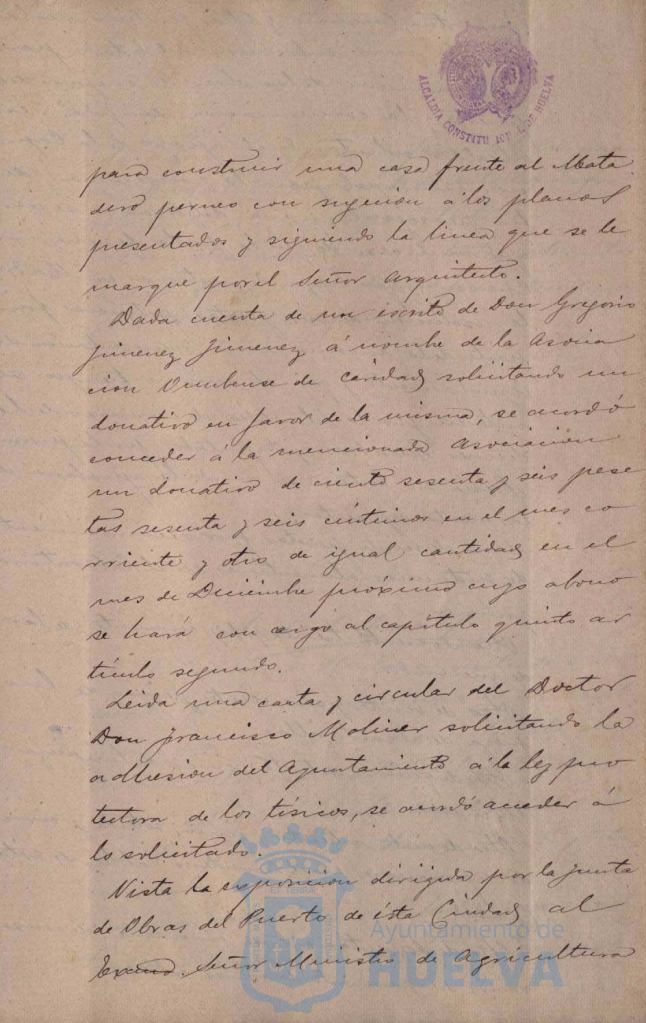 ALCALDIA CONSTITUCIONAL DE HUELVA
para construir una casa frente al Mata
dero perneo con sugecion á los planos
presentados y siguiendo la linea que se le
marque por el Señor Arquitecto.
Dada cuenta de un escrito de Don Gregorio
Jimenez Jimenez á nombre de la Asocia
cion Onubense de caridad solicitando un
donativo en favor de la misma, se acordó
conceder á la mencionada Asociacion
un donativo de ciento sesenta y seis pese
tas sesenta y seis céntimos en el mes co
rriente y otro de igual cantidad en el
mes de Diciembre próximo cuyo abono
se hará con cargo al capítulo quinto ar
tículo segundo.
Leida una carta y circular del Doctor
Don Francisco Moliner solicitando la
adhesion del Ayuntamiento á la ley pro
tectora de los tísicos, se acordó acceder á
lo solicitado.
Vista la exposicion dirigida por la Junta
de Obras del Puerto de ésta Ciudad al
Excmo. Señor Ministro de Agricultura
Ayuntamiento de
HUELVA